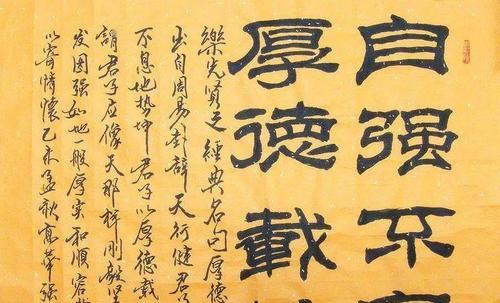 自强不
厚德載
樂先賢之經典名句厚德
出自周易卦辭天行健君
不息地势坤君子以厚德載
謂君子应像天那样刚毅坚
发图强如地一般厚实和顺容
以寄情懷乙未孟秋高華强